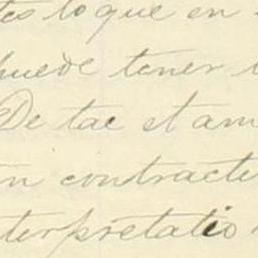 tes lo que en
puede tener
De tac et am
en contracte
terpretatio